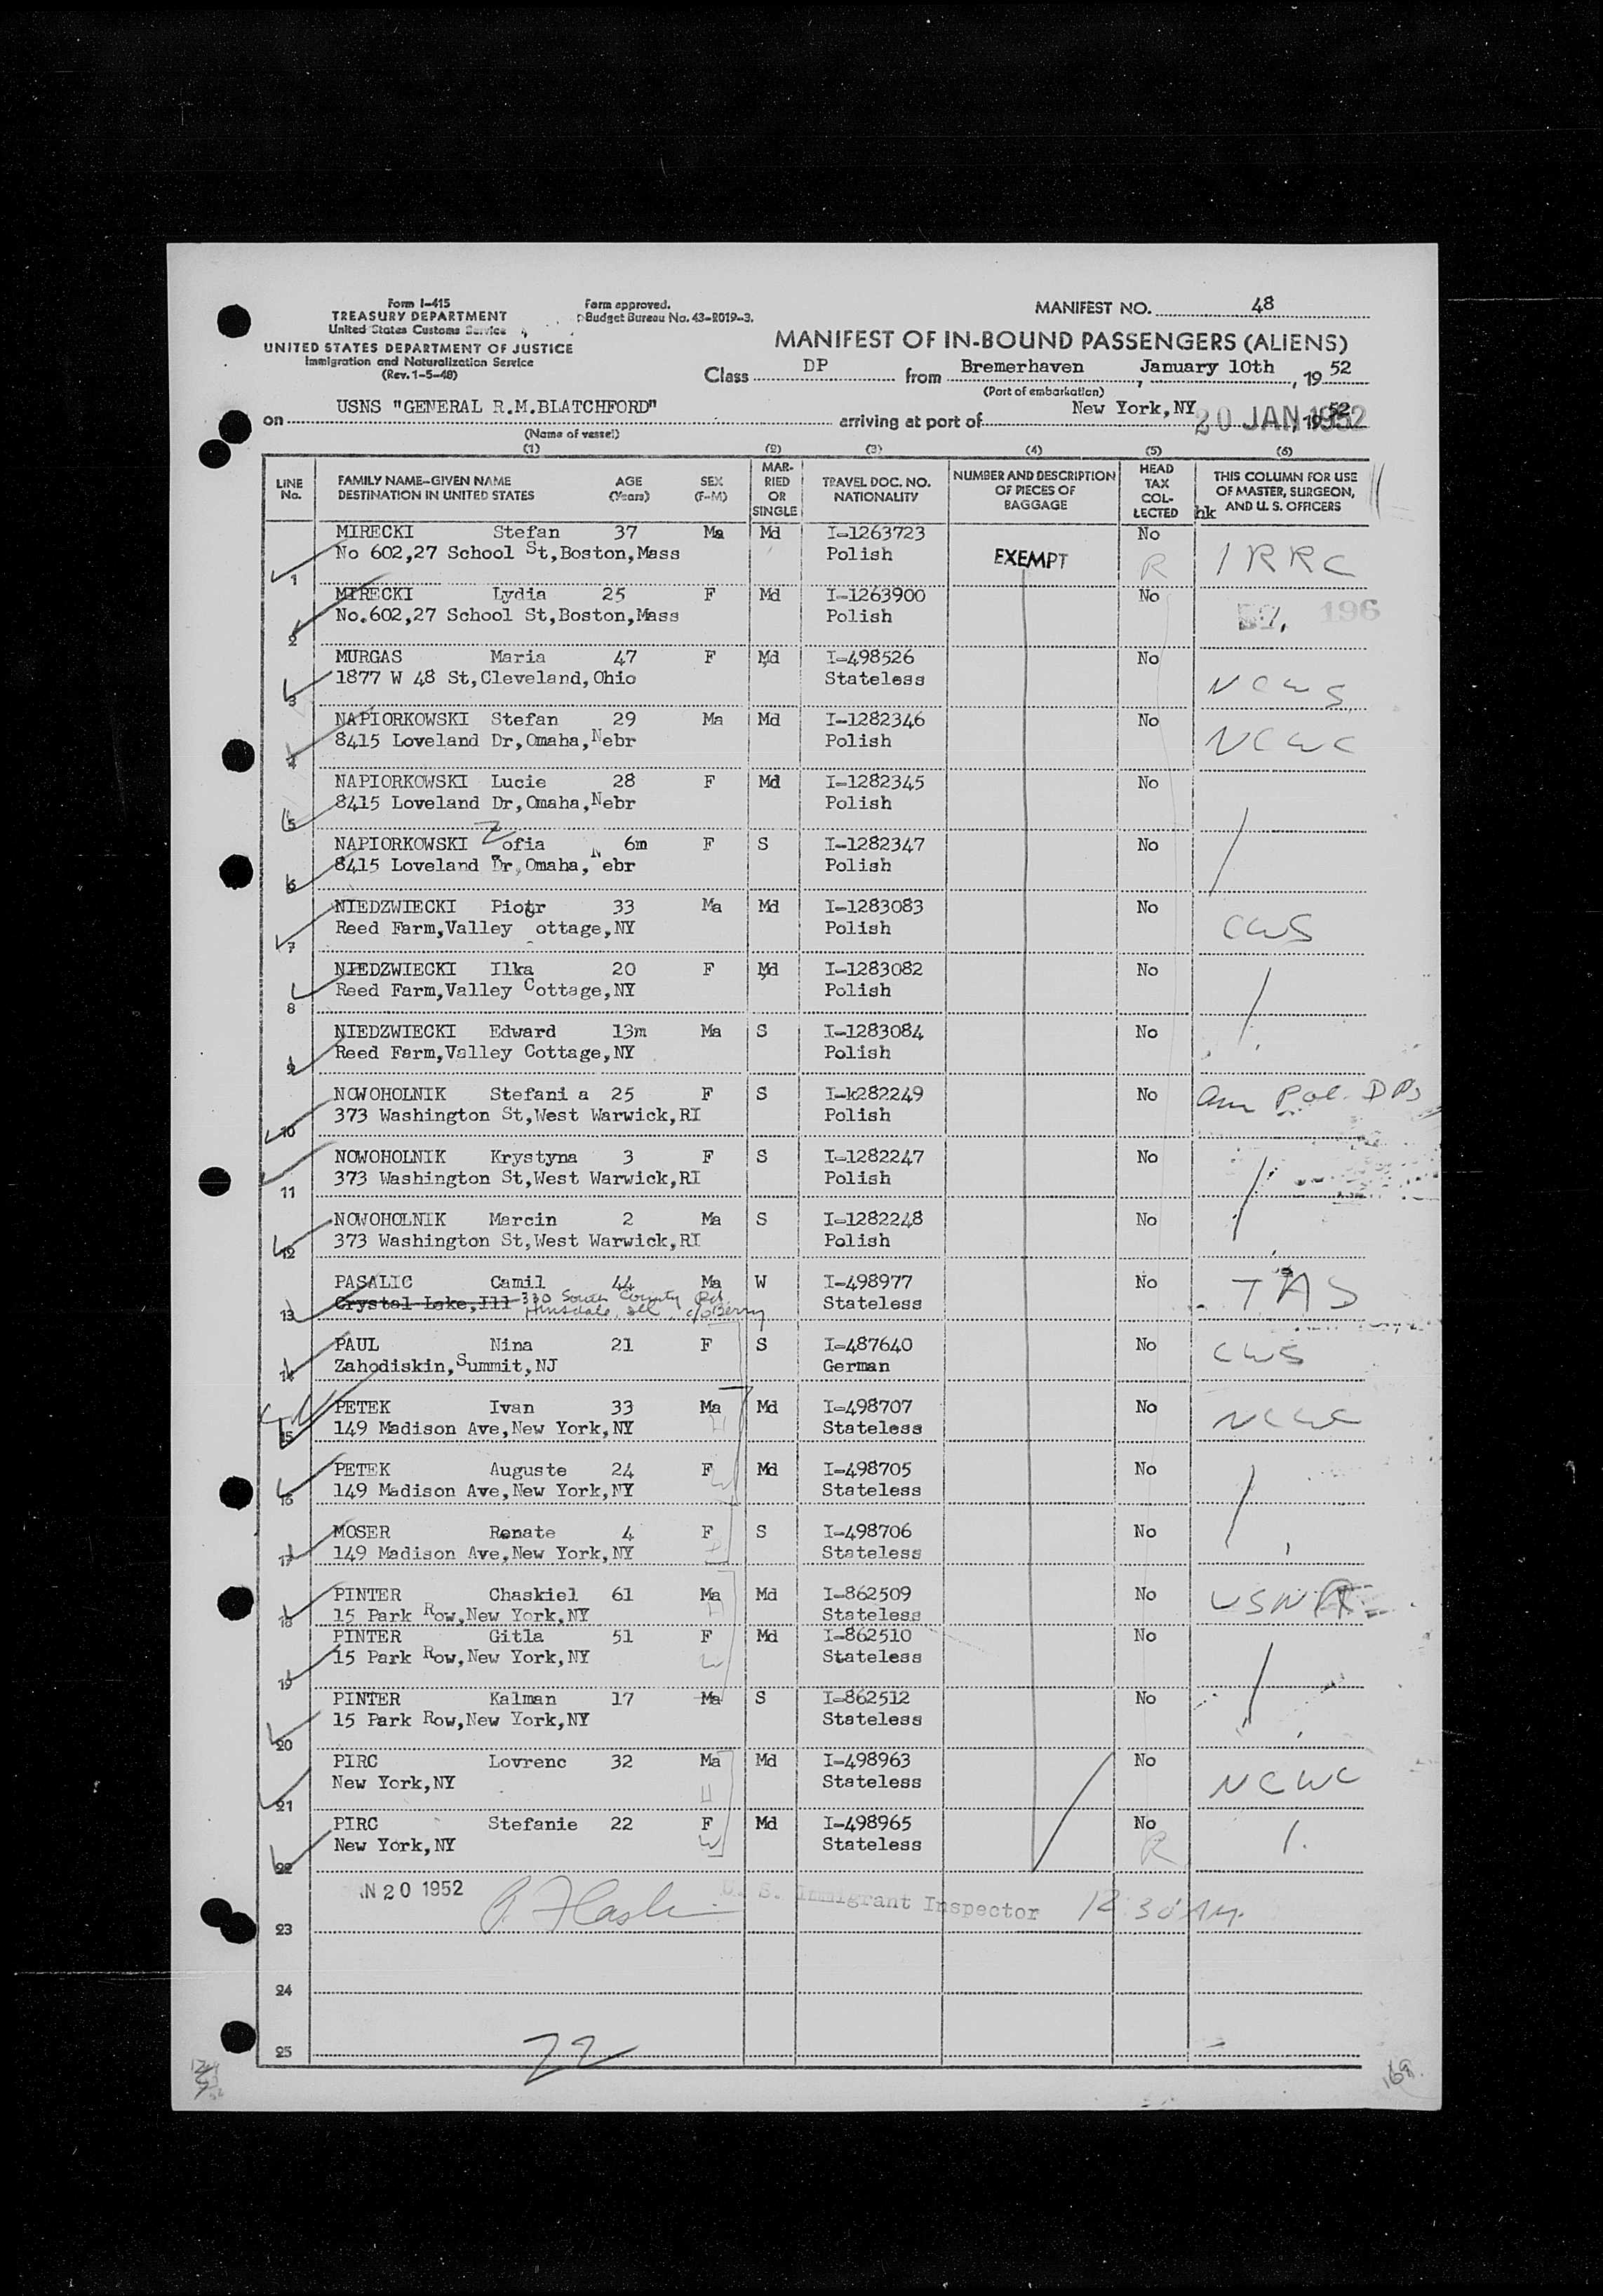 Form I-415
TREASURY DEPARTMENT
United States Customs Service
UNITED STATES DEPARTMENT OF JUSTICE
Immigration and Naturalization Service
(Rev. 1-5-48)
Form approved.
Budget Bureau No. 43-R019-3.
MANIFEST NO. 48
MANIFEST OF IN-BOUND PASSENGERS (ALIENS)
Class DP from Bremerhaven, January 10th, 19 52
(Port of embarkation)
on USNS "GENERAL R.M.BLATCHFORD" arriving at port of New York,NY 20 JAN 1952
(Name of vessel)
(1) (2) (3) (4) (5) (6)
LINE No. FAMILY NAME-GIVEN NAME DESTINATION IN UNITED STATES AGE (Years) SEX (F-M) MARRIED OR SINGLE TRAVEL DOC. NO. NATIONALITY NUMBER AND DESCRIPTION OF PIECES OF BAGGAGE HEAD TAX COLLECTED THIS COLUMN FOR USE OF MASTER, SURGEON, AND U. S. OFFICERS
hk
MIRECKI Stefan 37 Ma Md I-1263723 No
1 No 602,27 School St,Boston,Mass Polish EXEMPT R IRRC
MIRECKI Lydia 25 F Md I-1263900 No
2 No.602,27 School St,Boston,Mass Polish 196
MURGAS Maria 47 F Md I-498526 No
3 1877 W 48 St,Cleveland,Ohio Stateless NCWS
NAPIORKOWSKI Stefan 29 Ma Md I-1282346 No
4 8415 Loveland Dr,Omaha,Nebr Polish NCWC
NAPIORKOWSKI Lucie 28 F Md I-1282345 No
5 8415 Loveland Dr,Omaha,Nebr Polish
NAPIORKOWSKI Zofia 6m F S I-1282347 No
6 8415 Loveland Dr,Omaha,Nebr Polish
NIEDZWIECKI Piotr 33 Ma Md I-1283083 No
7 Reed Farm,Valley ottage,NY Polish CWS
NIEDZWIECKI Ilka 20 F Md I-1283082 No
8 Reed Farm,Valley Cottage,NY Polish
NIEDZWIECKI Edward 13m Ma S I-1283084 No
9 Reed Farm,Valley Cottage,NY Polish
NOWOHOLNIK Stefani a 25 F S I-k282249 No Am Pol. DPs
10 373 Washington St,West Warwick,RI Polish
NOWOHOLNIK Krystyna 3 F S I-1282247 No
11 373 Washington St,West Warwick,RI Polish
NOWOHOLNIK Marcin 2 Ma S I-1282248 No
12 373 Washington St,West Warwick,RI Polish
PASALIC Camil 44 Ma W I-498977 No TAS
13 Crystal Lake,Ill 330 South County Rd Stateless
Hinsdale, Ill c/o Berry
PAUL Nina 21 F S I-487640 No CWS
14 Zahodiskin,Summit,NJ German
PETEK Ivan 33 Ma Md I-498707 No NCWC
15 149 Madison Ave,New York,NY H Stateless
PETEK Auguste 24 F Md I-498705 No
16 149 Madison Ave,New York,NY W Stateless
MOSER Renate 4 F S I-498706 No
17 149 Madison Ave,New York,NY Stateless
PINTER Chaskiel 61 Ma Md I-862509 No USNA
18 15 Park Row,New York,NY H Stateless
PINTER Gitla 51 F Md I-862510 No
19 15 Park Row,New York,NY W Stateless
PINTER Kalman 17 Ma S I-862512 No
20 15 Park Row,New York,NY Stateless
PIRC Lovrenc 32 Ma Md I-498963 No
21 New York,NY H Stateless NCWC
PIRC Stefanie 22 F Md I-498965 No
22 New York,NY W Stateless R
AN 20 1952 U. S. Immigrant Inspector 12 30 AM.
23
24
25 22
168